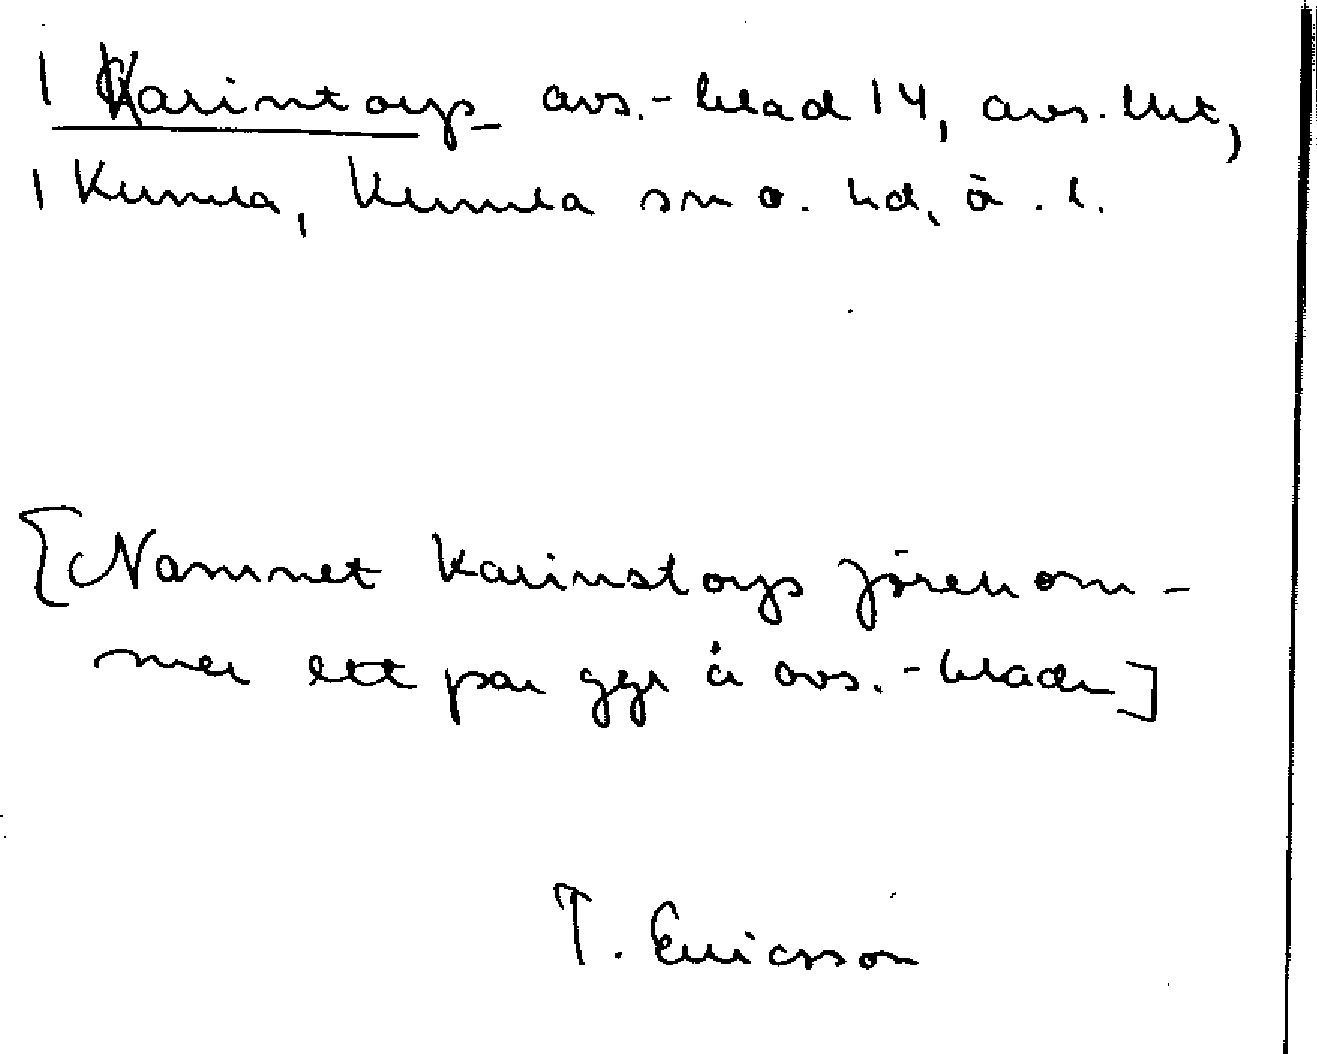 | Karintorps avs.-blad 14, avs. utt,
| Kumla, Kumla sn o. hd, ö. l.
[Namnet Karinstorps förekom-
mer ett par ggr å avs.-bladen]
T. Ericsson